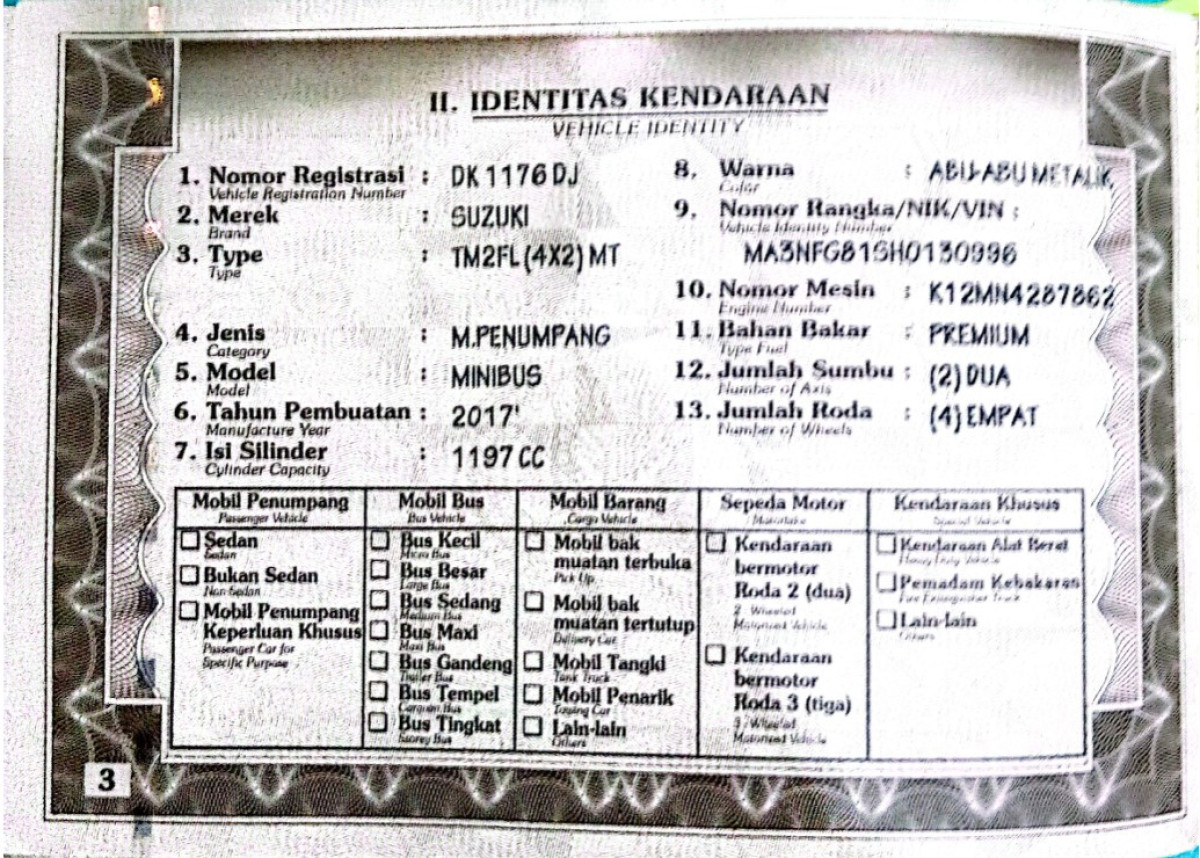 II. IDENTITAS KENDARAAN
VEHICLE IDENTITY
1. Nomor Registrasi : DK 1176 DJ
Vehicle Registration Number
2. Merek : SUZUKI
Brand
3. Type : TM2FL (4X2) MT
Type
4. Jenis : M.PENUMPANG
Category
5. Model : MINIBUS
Model
6. Tahun Pembuatan : 2017
Manufacture Year
7. Isi Silinder : 1197 CC
Cylinder Capacity
8. Warna : ABU-ABU METALIK
Color
9. Nomor Rangka/NIK/VIN :
Vehicle Identity Number
MA3NFG81SH0130996
10. Nomor Mesin : K12MN4287862
Engine Number
11. Bahan Bakar : PREMIUM
Type Fuel
12. Jumlah Sumbu : (2) DUA
Number of Axis
13. Jumlah Roda : (4) EMPAT
Number of Wheels
Mobil Penumpang
Passenger Vehicle
Sedan
Sedan
Bukan Sedan
Non Sedan
Mobil Penumpang
Keperluan Khusus
Passenger Car for
Specific Purpose
Mobil Bus
Bus Vehicle
Bus Kecil
Micro Bus
Bus Besar
Large Bus
Bus Sedang
Medium Bus
Bus Maxi
Maxi Bus
Bus Gandeng
Trailer Bus
Bus Tempel
Caravan Bus
Bus Tingkat
Storey Bus
Mobil Barang
Cargo Vehicle
Mobil bak
muatan terbuka
Pick Up
Mobil bak
muatan tertutup
Delivery Car
Mobil Tangki
Tank Truck
Mobil Penarik
Towing Car
Lain-lain
Others
Sepeda Motor
Motorbike
Kendaraan
bermotor
Roda 2 (dua)
2 Wheeled
Motorized Vehicle
Kendaraan
bermotor
Roda 3 (tiga)
3 Wheeled
Motorized Vehicle
Kendaraan Khusus
Special Vehicle
Kendaraan Alat Berat
Heavy Duty Vehicle
Pemadam Kebakaran
Fire Extinguisher Truck
Lain-lain
Others
3